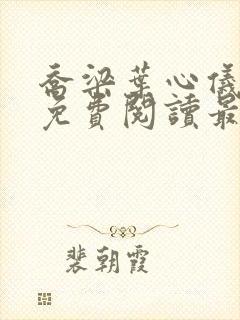 喬梁葉心儀
免費閱讀最
裴朝霞